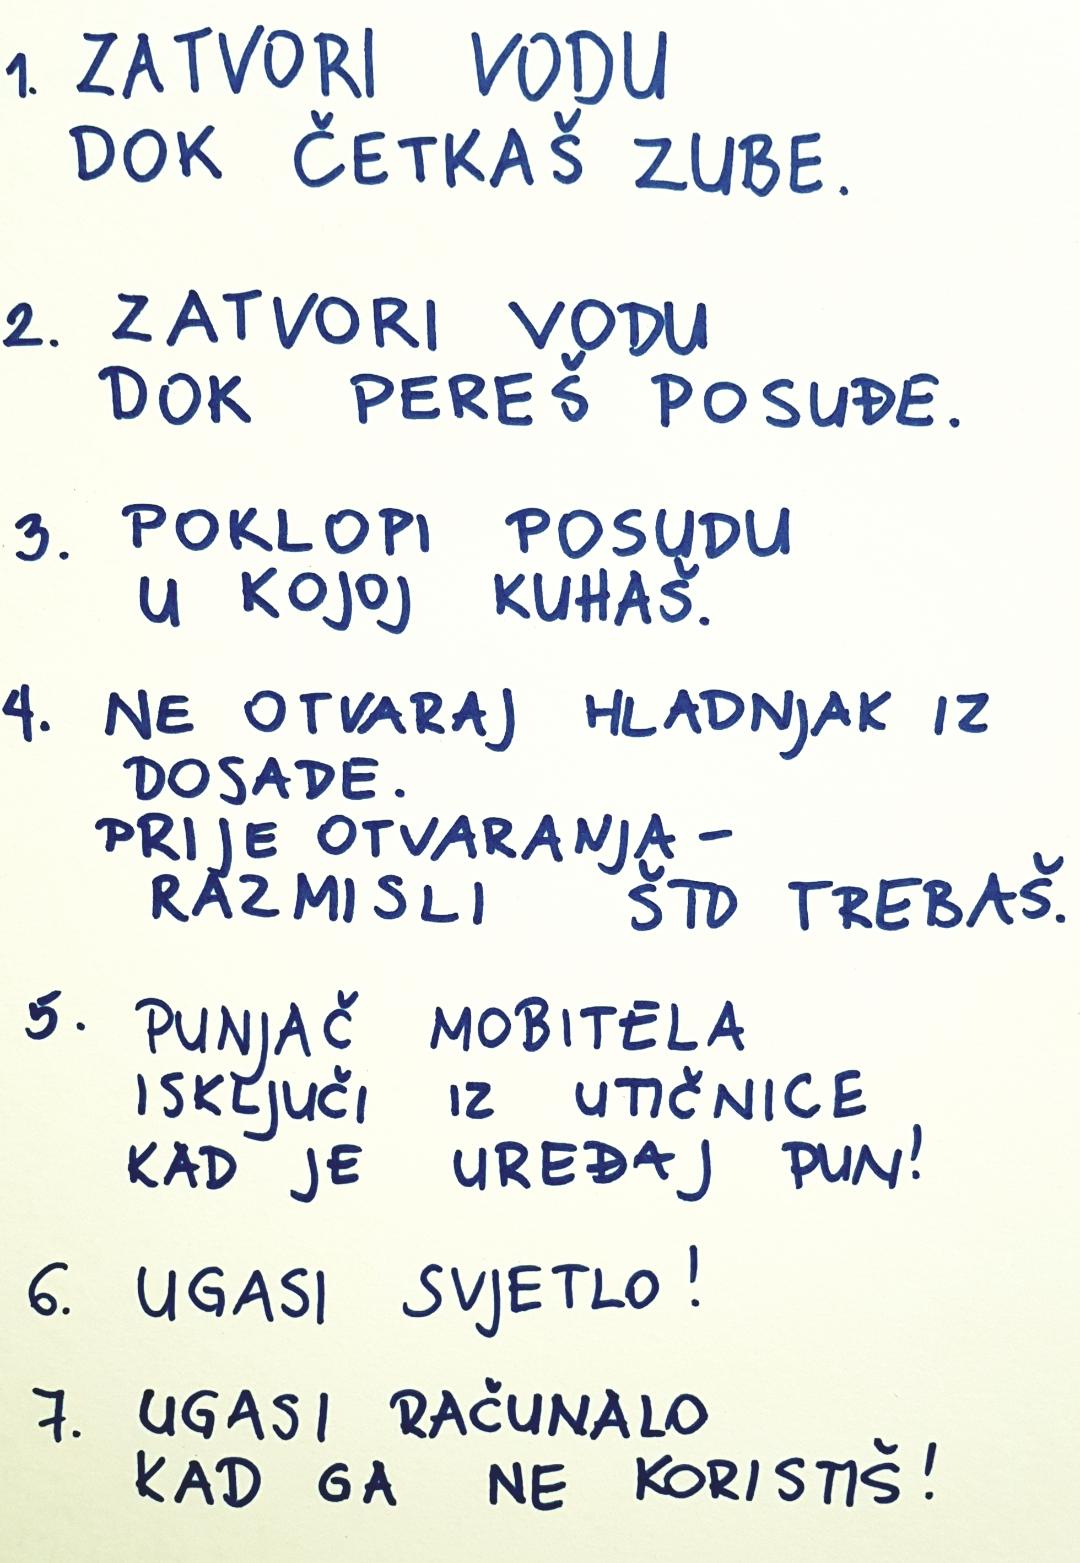 1. ZATVORI VODU
DOK ČETKAŠ ZUBE.
2. ZATVORI VODU
DOK PEREŠ POSUĐE.
3. POKLOPI POSUDU
U KOJOJ KUHAŠ.
4. NE OTVARAJ HLADNJAK IZ
DOSADE.
PRIJE OTVARANJA -
RAZMISLI ŠTO TREBAŠ.
5. PUNJAČ MOBITELA
ISKLJUČI IZ UTIČNICE
KAD JE UREĐAJ PUN!
6. UGASI SVJETLO!
7. UGASI RAČUNALO
KAD GA NE KORISTIŠ!